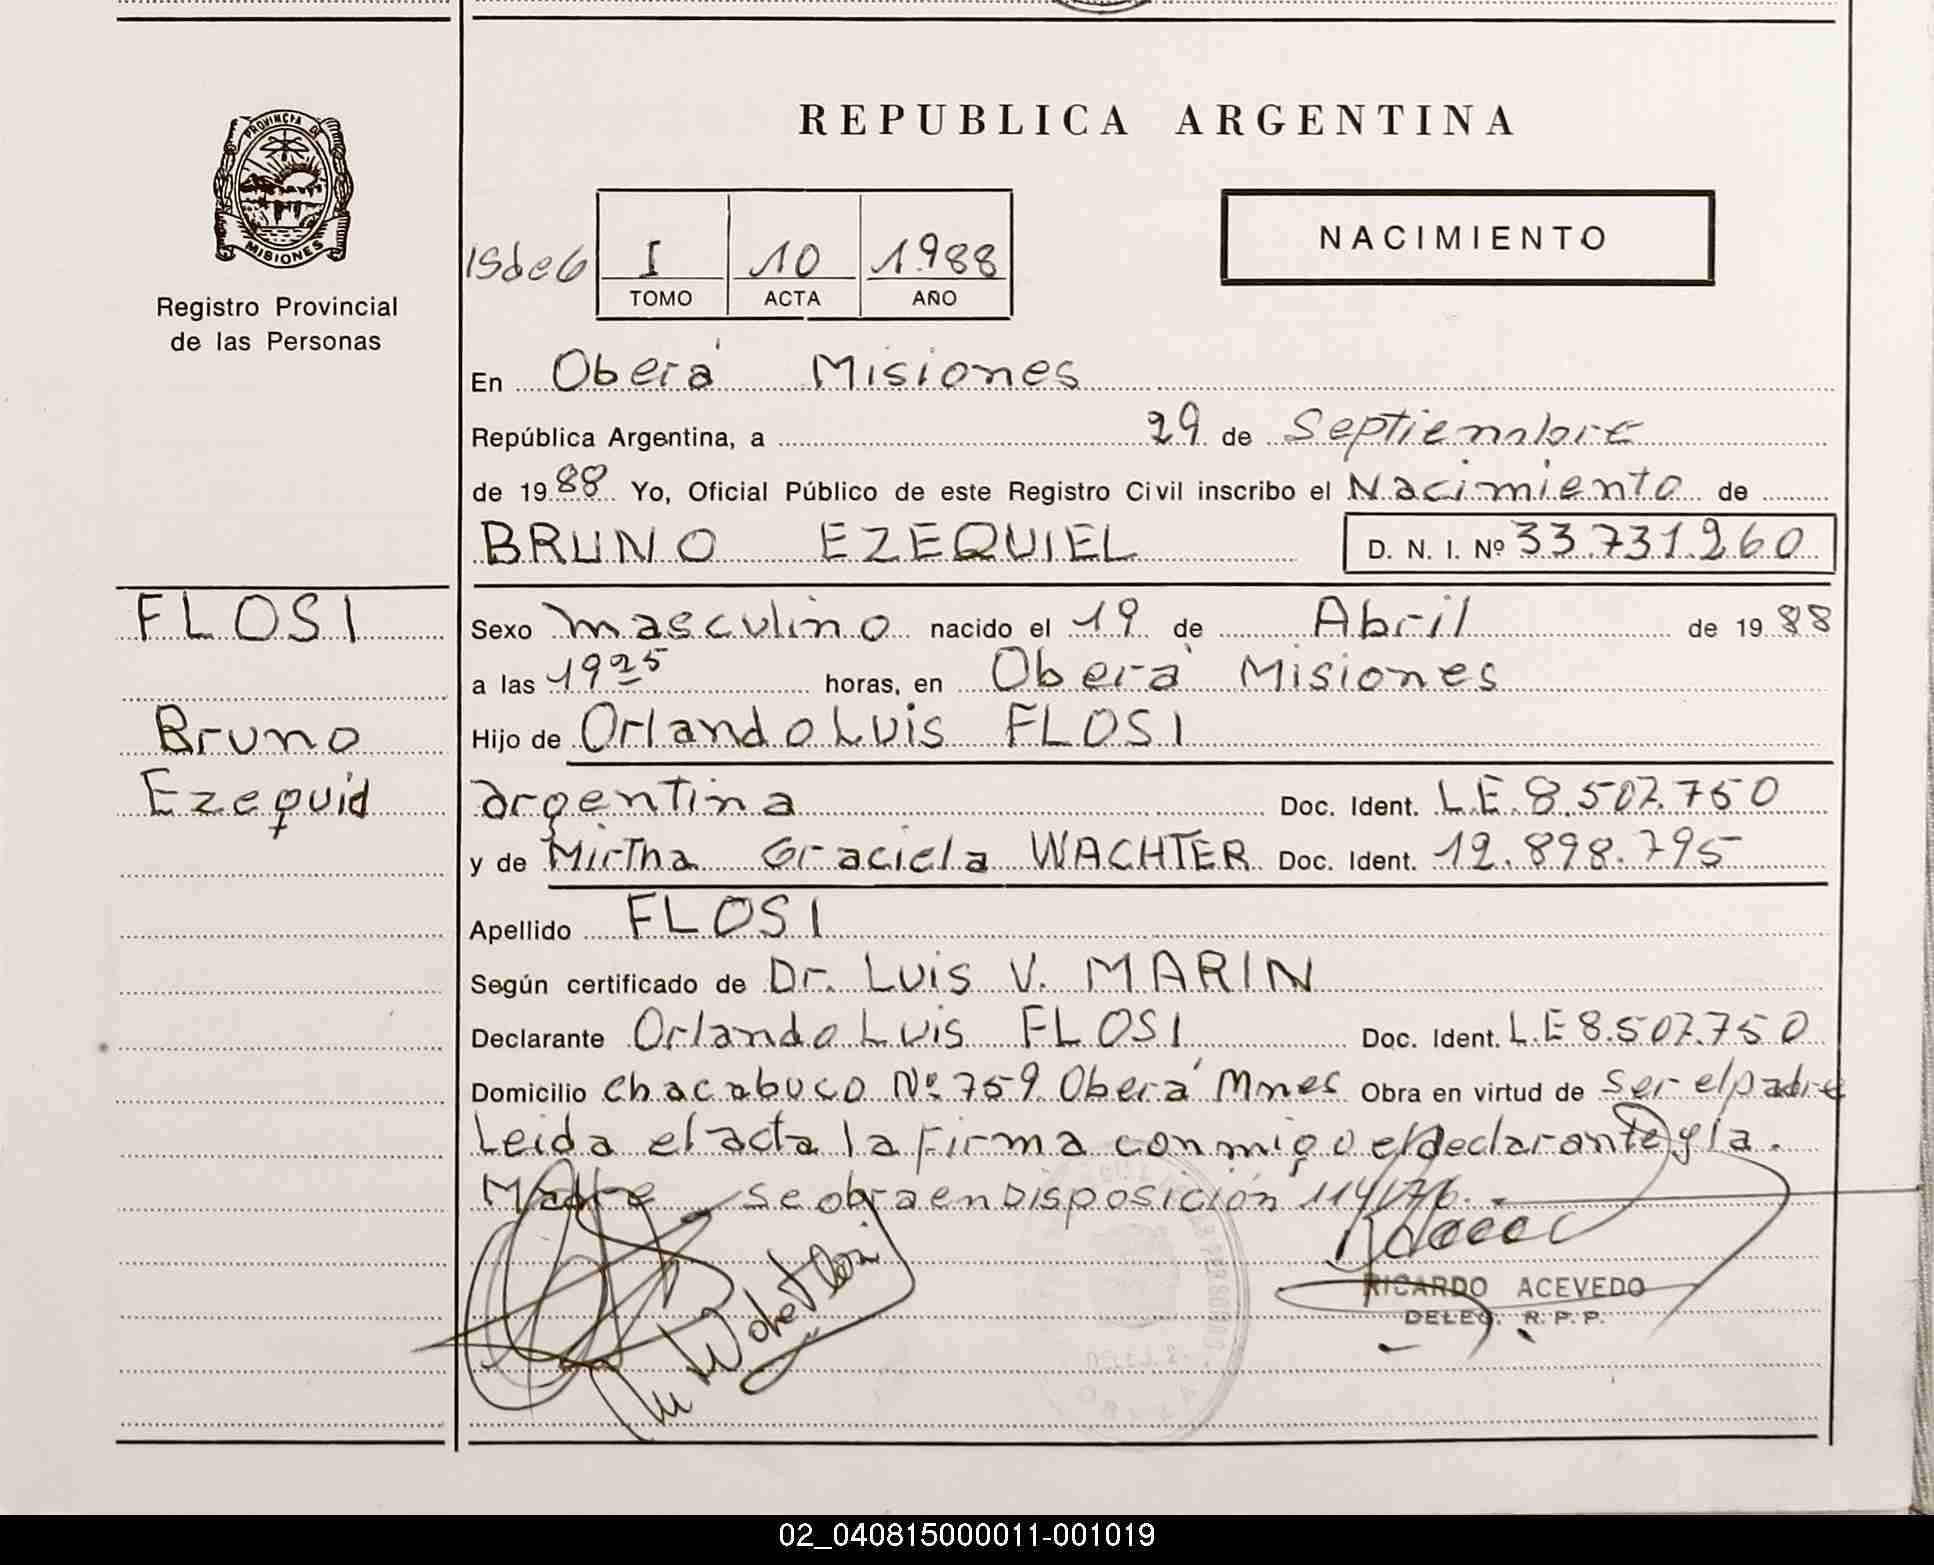 REPUBLICA ARGENTINA
PROVINCIA DE
MISIONES
Registro Provincial
de las Personas
I 10 1.988
TOMO ACTA AÑO
NACIMIENTO
En Oberá Misiones
República Argentina, a 29 de Septiembre
de 1988 Yo, Oficial Público de este Registro Civil inscribo el Nacimiento de
BRUNO EZEQUIEL D. N. I. Nº 33.731.260
FLOSI
Bruno
Ezequiel
Sexo masculino nacido el 19 de Abril de 1988
a las 1925 horas, en Oberá Misiones
Hijo de Orlando Luis FLOSI
argentina Doc. Ident. L.E. 8.507.750
y de Mirtha Graciela WACHTER Doc. Ident. 12.898.795
Apellido FLOSI
Según certificado de Dr. Luis V. MARIN
Declarante Orlando Luis FLOSI Doc. Ident. L.E 8.507.750
Domicilio chacabuco Nº 759 Oberá Mnes Obra en virtud de ser el padre
Leida el acta la Firma conmigo el declarante y la
Madre se obra en Disposición 114/76.
RICARDO ACEVEDO
DELEG. R. P. P.
02_040815000011-001019